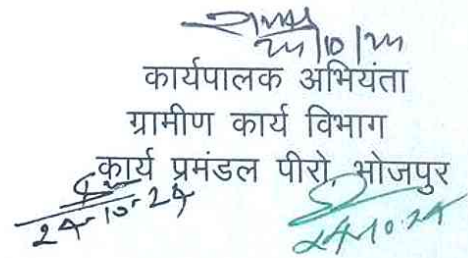 24/10/24
कार्यपालक अभियंता
ग्रामीण कार्य विभाग
कार्य प्रमंडल पीरो, भोजपुर
24-10-24
24.10.24